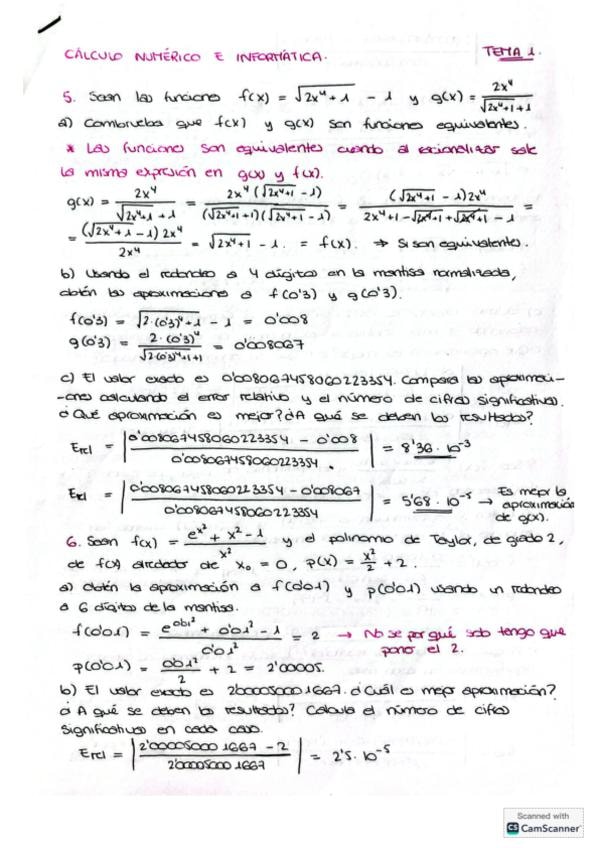 CÁLCULO NUMÉRICO E INFORMÁTICA. TEMA 1.
5. Sean las funciones f(x) = √(2x⁴ + 1) - 1 y g(x) = 2x⁴ / (√(2x⁴+1) + 1)
a) Comprueba que f(x) y g(x) son funciones equivalentes.
* Las funciones son equivalentes cuando al racionalizar sale
la misma expresión en g(x) y f(x).
g(x) = 2x⁴ / (√(2x⁴+1) + 1) = 2x⁴(√(2x⁴+1) - 1) / (√(2x⁴+1) + 1)(√(2x⁴+1) - 1) = (√(2x⁴+1) - 1)2x⁴ / (2x⁴+1 - √(2x⁴+1) + √(2x⁴+1) - 1) =
= (√(2x⁴+1) - 1) 2x⁴ / 2x⁴ = √(2x⁴+1) - 1. = f(x). ⇒ Si son equivalentes.
b) Usando el redondeo a 4 dígitos en la mantisa normalizada,
obtén las aproximaciones a f(0'3) y g(0'3).
f(0'3) = √(2·(0'3)⁴ + 1) - 1 = 0'008
g(0'3) = 2·(0'3)⁴ / (√(2·(0'3)⁴+1) + 1) = 0'008067
c) El valor exacto es 0'008067458060223354. Compara las aproximaci-
-ones calculando el error relativo y el número de cifras significativas.
¿Qué aproximación es mejor? ¿A qué se deben los resultados?
Erel = |(0'008067458060223354 - 0'008) / 0'008067458060223354| = 8'36·10⁻³
Erel = |(0'008067458060223354 - 0'008067) / 0'008067458060223354| = 5'68·10⁻⁵ → Es mejor la
aproximación
de g(x).
6. Sean f(x) = (e^x² + x² - 1) / x² y el polinomio de Taylor, de grado 2,
de f(x) alrededor de x₀ = 0, p(x) = x²/2 + 2.
a) Obtén la aproximación a f(0'01) y p(0'01) usando un redondeo
a 6 dígitos de la mantisa.
f(0'01) = (e^0'01² + 0'01² - 1) / 0'01² = 2 → No se por qué solo tengo que
poner el 2.
p(0'01) = 0'01²/2 + 2 = 2'00005.
b) El valor exacto es 2'00005000 1667. ¿Cuál es mejor aproximación?
¿A qué se deben los resultados? Calcula el número de cifras
significativas en cada caso.
Erel = |(2'00005000 1667 - 2) / 2'00005000 1667| = 2'5·10⁻⁵
Scanned with
CS CamScanner